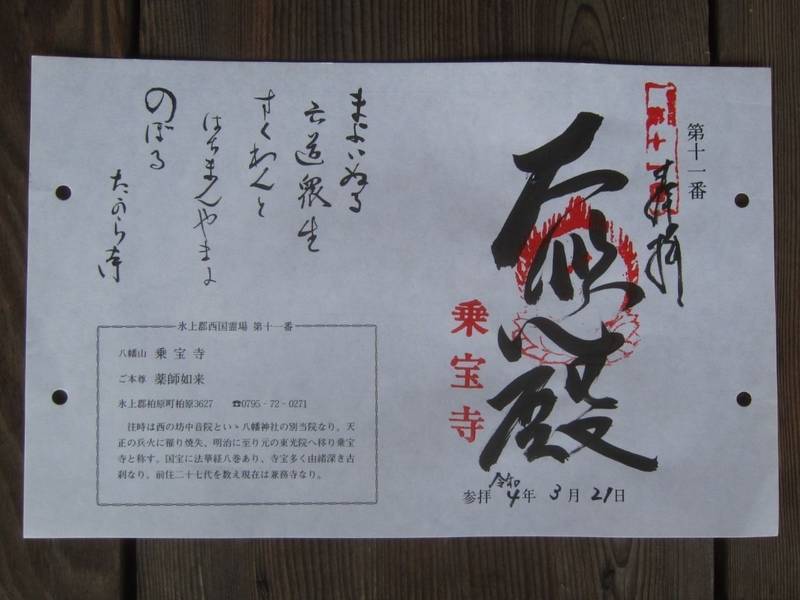 第十一番
奉拝
大悲殿
乗宝寺
参拝 令和4年3月21日
まよいぬる
六道衆生
すくわんと
はちまんやまに
のぼる
たからの寺
氷上郡西国霊場 第十一番
八幡山 乗宝寺
ご本尊 薬師如来
氷上郡柏原町柏原3627 ☎0795-72-0271
往時は西の坊中音院といゝ八幡神社の別当院なり。天
正の兵火に罹り焼失、明治に至り元の東光院へ移り乗宝
寺と称す。国宝に法華経八巻あり、寺宝多く由緒深き古
刹なり。前住二十七代を数え現在は兼務寺なり。